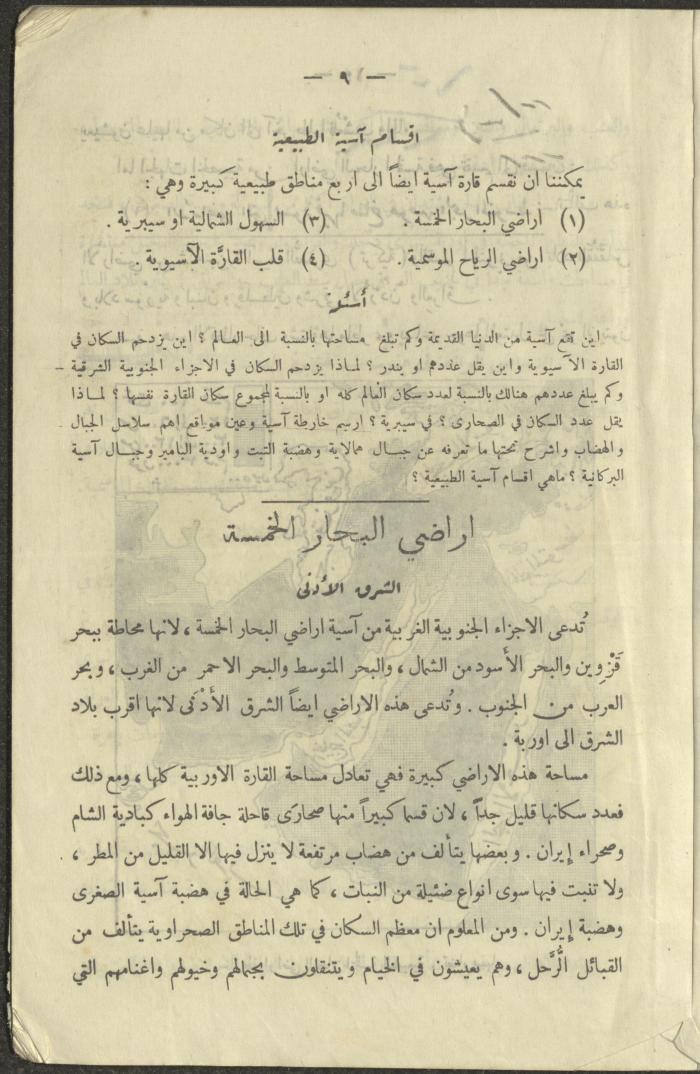 — ٩ —
اقسام آسية الطبيعية
يمكننا ان نقسم قارة آسية ايضاً الى اربع مناطق طبيعية كبيرة وهي :
(١) اراضي البحار الخمسة . (٣) السهول الشمالية او سيبرية .
(٢) اراضي الرياح الموسمية . (٤) قلب القارَّة الآسيوية .
أسئلة
اين تقع آسية من الدنيا القديمة وكم تبلغ مساحتها بالنسبة الى العالم ؟ اين يزدحم السكان في
القارة الآسيوية واين يقل عددهم او يندر ؟ لماذا يزدحم السكان في الاجزاء الجنوبية الشرقية –
وكم يبلغ عددهم هنالك بالنسبة لعدد سكان العالم كله او بالنسبة لمجموع سكان القارة نفسها ؟ لماذا
يقل عدد السكان في الصحارى ؟ في سيبرية ؟ ارسم خارطة آسية وعين مواقع اهم سلاسل الجبال
والهضاب واشرح تحتها ما تعرفه عن جبال همالاية وهضبة التبت واودية البامير وجبال آسية
البركانية ؟ ماهي اقسام آسية الطبيعية ؟
اراضي البحار الخمسة
الشرق الأدنى
تُدعى الاجزاء الجنوبية الغربية من آسية اراضي البحار الخمسة ، لانها محاطة ببحر
قَزْوِين والبحر الأسود من الشمال ، والبحر المتوسط والبحر الاحمر من الغرب ، وبحر
العرب من الجنوب . وتُدعى هذه الاراضي ايضاً الشرق الأدْنى لانها اقرب بلاد
الشرق الى اوربة .
مساحة هذه الاراضي كبيرة فهي تعادل مساحة القارة الاوربية كلها ، ومع ذلك
فعدد سكانها قليل جداً ، لان قسما كبيراً منها صحارَى قاحلة جافة الهواء كبادية الشام
وصحراء إيران . وبعضها يتألف من هضاب مرتفعة لا ينزل فيها الا القليل من المطر ،
ولا تنبت فيها سوى انواع ضئيلة من النبات ، كما هي الحالة في هضبة آسية الصغرى
وهضبة إيران . ومن المعلوم ان معظم السكان في تلك المناطق الصحراوية يتألف من
القبائل الرُّحل ، وهم يعيشون في الخيام ويتنقلون بجمالهم وخيولهم واغنامهم التي